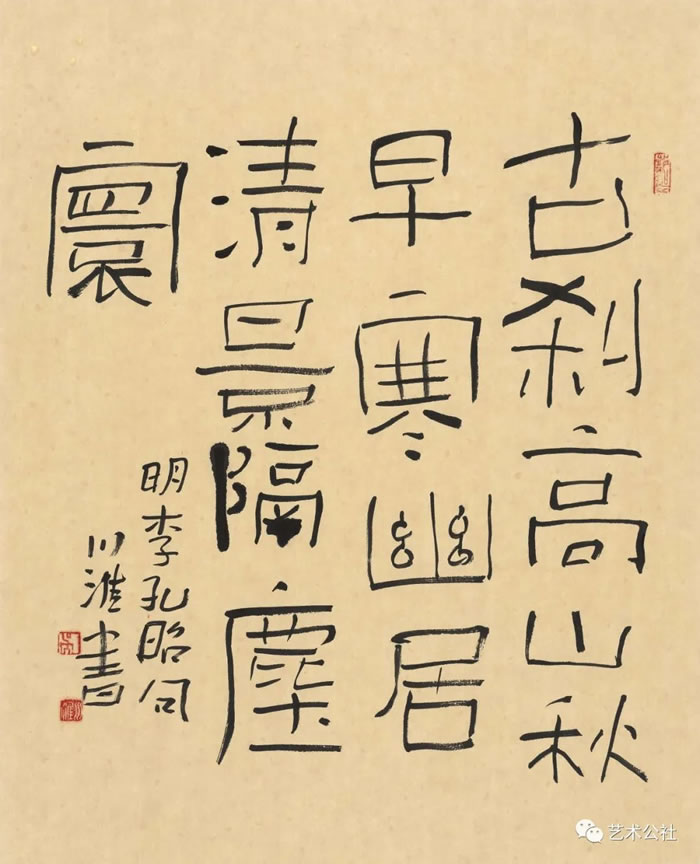 古刹高山秋
早寒幽居
清景隔塵
寰
明李孔昭句
川淮書
艺术公社